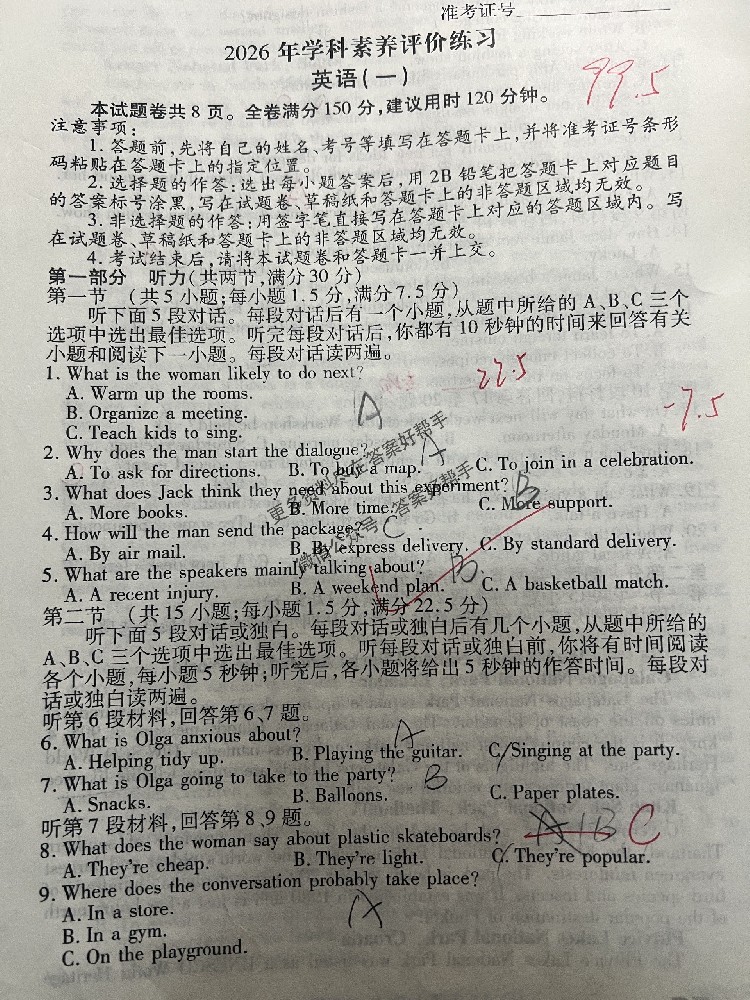 准考证号
2026 年学科素养评价练习
99.5
英语(一)
本试题卷共 8 页。全卷满分 150 分,建议用时 120 分钟。
注意事项:
1. 答题前,先将自己的姓名、考号等填写在答题卡上,并将准考证号条形
码粘贴在答题卡上的指定位置。
2. 选择题的作答:选出每小题答案后,用 2B 铅笔把答题卡上对应题目
的答案标号涂黑,写在试题卷、草稿纸和答题卡上的非答题区域均无效。
3. 非选择题的作答:用签字笔直接写在答题卡上对应的答题区域内。写
在试题卷、草稿纸和答题卡上的非答题区域均无效。
4. 考试结束后,请将本试题卷和答题卡一并上交。
第一部分 听力(共两节,满分 30 分)
第一节 (共 5 小题;每小题 1.5 分,满分 7.5 分)
听下面 5 段对话。每段对话后有一个小题,从题中所给的 A、B、C 三个
选项中选出最佳选项。听完每段对话后,你都有 10 秒钟的时间来回答有关
小题和阅读下一小题。每段对话读两遍。
1. What is the woman likely to do next?
22.5
A. Warm up the rooms.
-7.5
B. Organize a meeting.
A
C. Teach kids to sing.
2. Why does the man start the dialogue?
A
A. To ask for directions. B. To buy a map. C. To join in a celebration.
3. What does Jack think they need about this experiment?
B
A. More books. B. More time. C. More support.
4. How will the man send the package?
C
A. By air mail. B. By express delivery. C. By standard delivery.
5. What are the speakers mainly talking about?
B
A. A recent injury. B. A weekend plan. C. A basketball match.
更多资料关注答案好帮手
微信公众号:答案好帮手
第二节 (共 15 小题;每小题 1.5 分,满分 22.5 分)
听下面 5 段对话或独白。每段对话或独白后有几个小题,从题中所给的
A、B、C 三个选项中选出最佳选项。听每段对话或独白前,你将有时间阅读
各个小题,每小题 5 秒钟;听完后,各小题将给出 5 秒钟的作答时间。每段对
话或独白读两遍。
听第 6 段材料,回答第 6、7 题。
6. What is Olga anxious about?
A
A. Helping tidy up. B. Playing the guitar. C. Singing at the party.
7. What is Olga going to take to the party?
B
A. Snacks. B. Balloons. C. Paper plates.
听第 7 段材料,回答第 8、9 题。
8. What does the woman say about plastic skateboards?
A B C
A. They're cheap. B. They're light. C. They're popular.
9. Where does the conversation probably take place?
A. In a store.
A
B. In a gym.
C. On the playground.